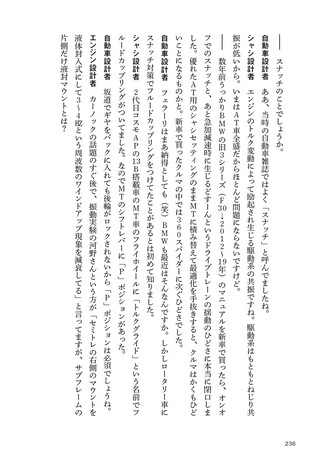 ―― スナッチのことでしょうか。
自動車設計者　ああ、当時の自動車雑誌ではよく「スナッチ」と呼んでましたね。
シャシ設計者　エンジンのトルク変動によって励起され生じる駆動系の共振ですね。駆動系はもともとねじり共
振が低いから。いまはAT車全盛だからほとんど問題にならないですけど。
―― 数年前うっかりBMWの旧3シリーズ（F30→2012～19年）のマニュアルを新車で買ったら、オンオ
フでのスナッチと、あと急加減速時に生じるどすーんというドライブトレーンの揺動のひどさに本当に閉口しま
した。優れたAT用のシャシセッティングのままMTに積み替えて最適化を手抜きすると、クルマはかくもひど
いことになるものかと。新車で買ったクルマの中では360スパイダーに次ぐひどさでした。
自動車設計者　フェラーリはまあ納得としても（笑）BMWも最近はそんなんですか。しかしロータリー車に
スナッチ対策でフルードカップリングをつけてたことがあるとは初めて知りました。
シャシ設計者　2代目コスモAPの13B搭載車のMT車のフライホイールに「トルクグライド」という名前でフ
ルードカップリングがついてました。なのでMTのシフトレバーに「P」ポジションがあった。
自動車設計者　坂道でギヤをバックに入れても後輪がロックされないから「P」ポジションは必須でしょうね。
エンジン設計者　カーノックの話題のすぐ後で、振動実験の河野さんという方が「セミトレの右側のマウントを
液体封入式にして3～4㎐という周波数のワインドアップ現象を減衰してる」と言ってますが、サブフレームの
片側だけ液封マウントとは？
236